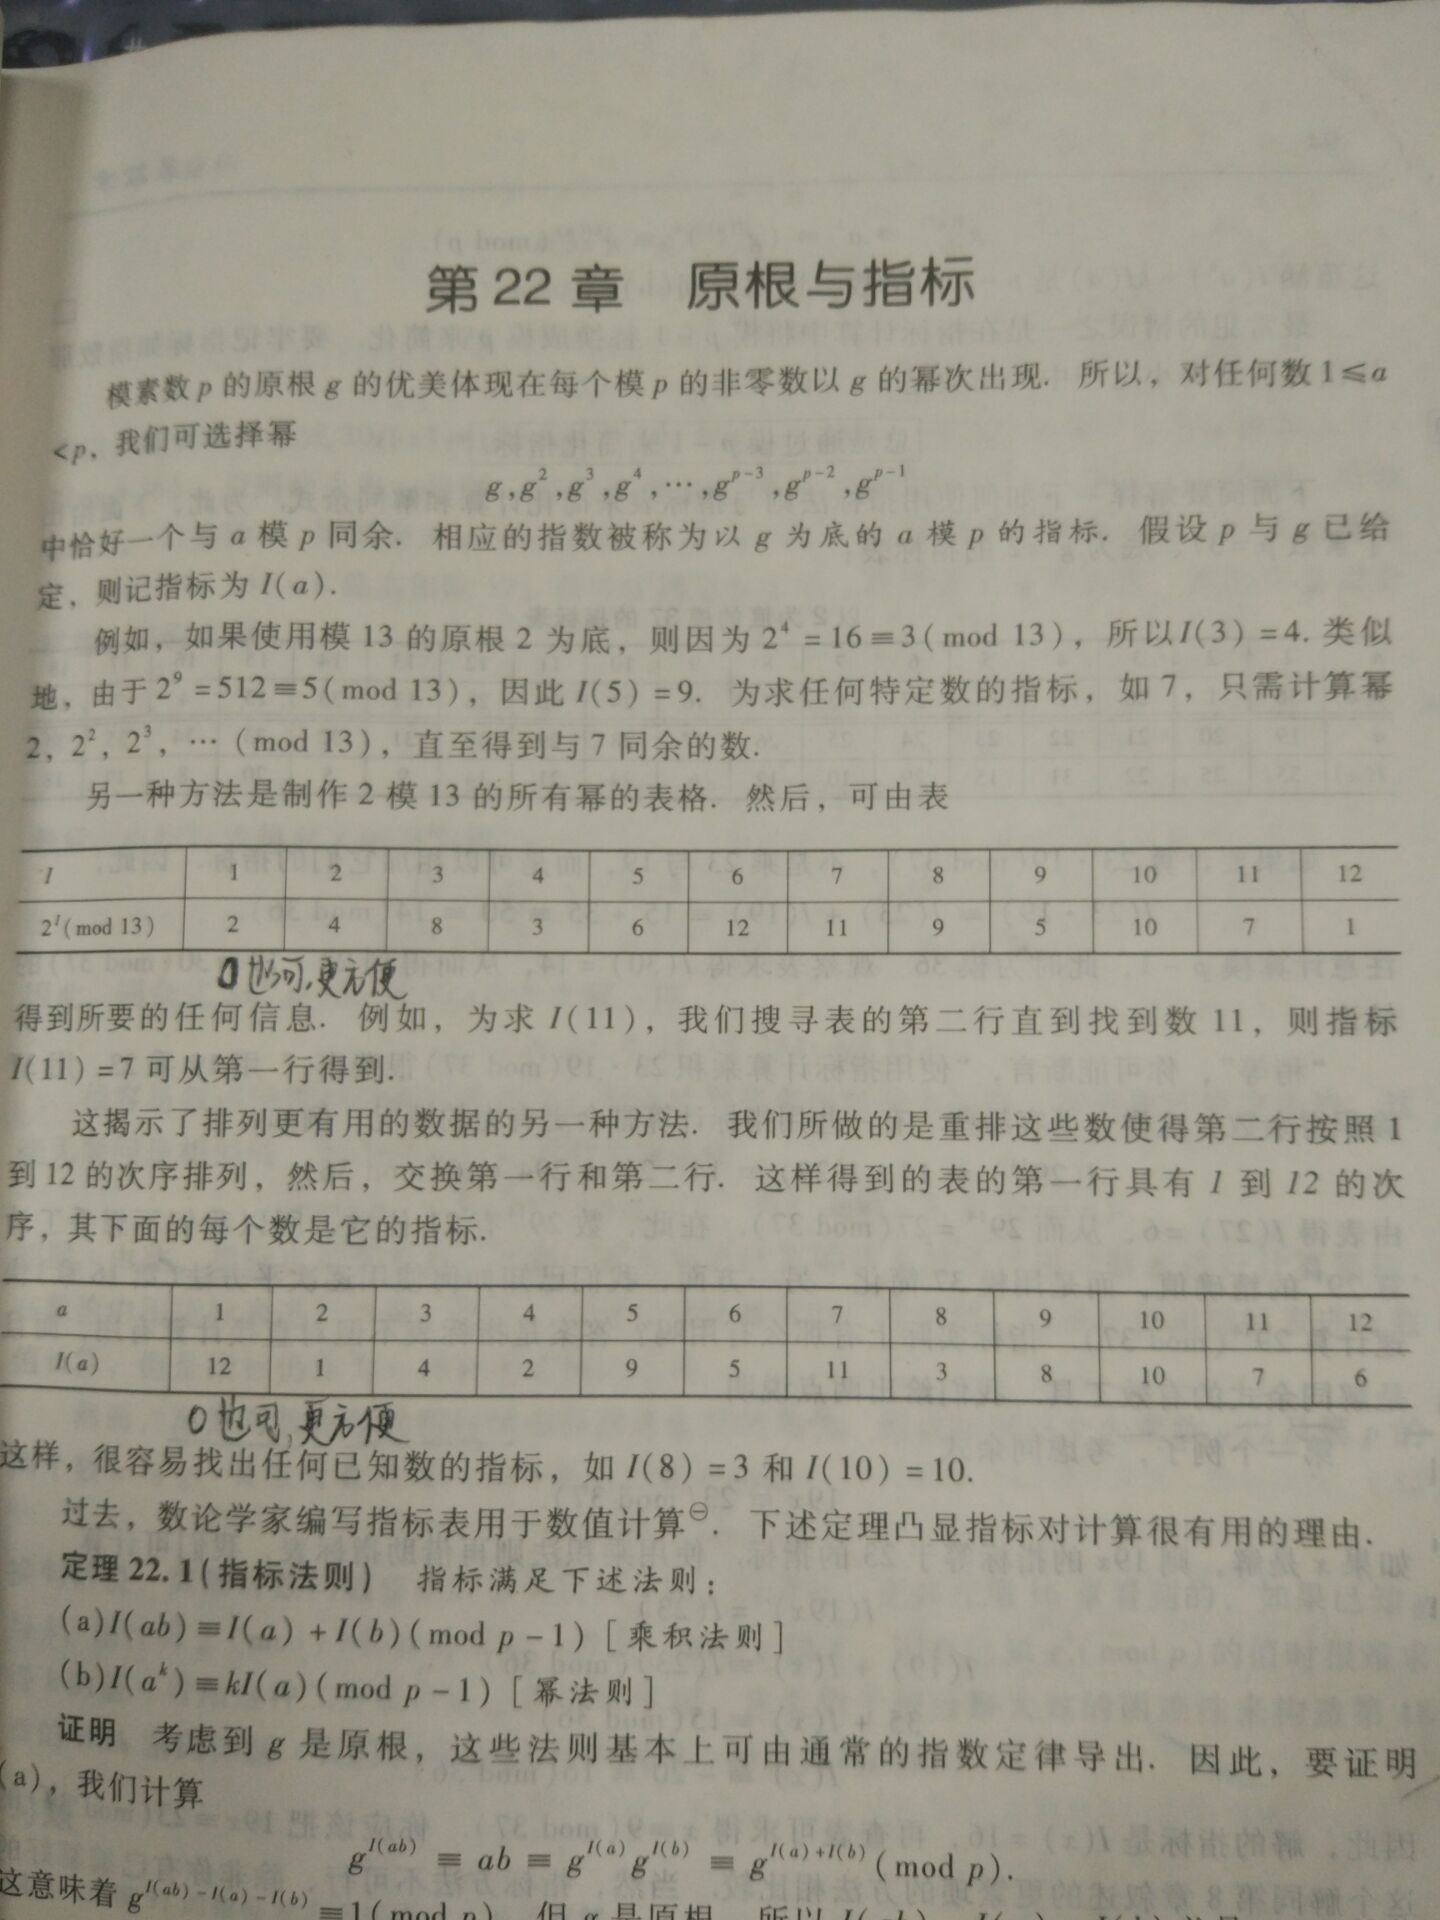 第 22 章　原根与指标
模素数 p 的原根 g 的优美体现在每个模 p 的非零数以 g 的幂次出现．所以，对任何数 1⩽a
<p，我们可选择幂
g,g²,g³,g⁴,…,gᵖ⁻³,gᵖ⁻²,gᵖ⁻¹
中恰好一个与 a 模 p 同余．相应的指数被称为以 g 为底的 a 模 p 的指标．假设 p 与 g 已给
定，则记指标为 I(a)．
例如，如果使用模 13 的原根 2 为底，则因为 2⁴ = 16≡3(mod 13)，所以I(3) =4. 类似
地，由于 2⁹ =512≡5(mod 13)，因此 I(5) =9．为求任何特定数的指标，如 7，只需计算幂
2，2²，2³，… (mod 13)，直至得到与 7 同余的数．
另一种方法是制作 2 模 13 的所有幂的表格．然后，可由表
I 1 2 3 4 5 6 7 8 9 10 11 12
2ᴵ(mod 13) 2 4 8 3 6 12 11 9 5 10 7 1
0也可,更方便
得到所要的任何信息．例如，为求 I(11)，我们搜寻表的第二行直到找到数 11，则指标
I(11) =7 可从第一行得到．
这揭示了排列更有用的数据的另一种方法．我们所做的是重排这些数使得第二行按照 1
到 12 的次序排列，然后，交换第一行和第二行．这样得到的表的第一行具有 1 到 12 的次
序，其下面的每个数是它的指标．
a 1 2 3 4 5 6 7 8 9 10 11 12
I(a) 12 1 4 2 9 5 11 3 8 10 7 6
0也可,更方便
这样，很容易找出任何已知数的指标，如 I(8) =3 和 I(10) =10.
过去，数论学家编写指标表用于数值计算⊖．下述定理凸显指标对计算很有用的理由．
定理 22.1(指标法则)　指标满足下述法则：
(a)I(ab)≡I(a) +I(b)(mod p-1)［乘积法则］
(b)I(aᵏ)≡kI(a)(mod p-1)［幂法则］
证明　考虑到 g 是原根，这些法则基本上可由通常的指数定律导出．因此，要证明
(a)，我们计算
g^I(ab) ≡ ab ≡ g^I(a) g^I(b) ≡ g^I(a)+I(b) (mod p).
这意味着 g^I(ab)-I(a)-I(b) ≡1(mod p)．但 g 是原根，所以